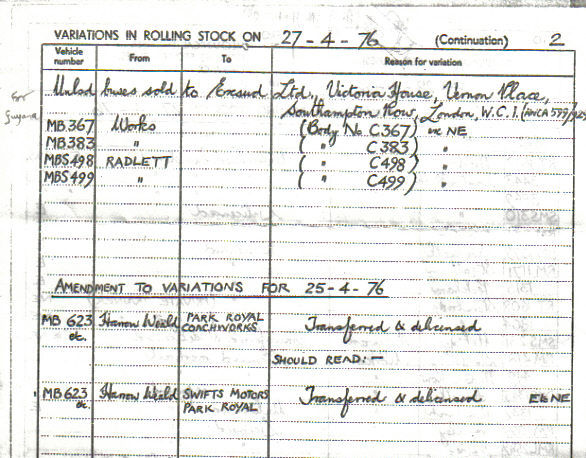 VARIATIONS IN ROLLING STOCK ON 27-4-76 (Continuation) 2
Vehicle number From To Reason for variation
Unlsd buses sold to Exsud Ltd., Victoria House, Vernon Place,
for Guyana
Southampton Row, London, W.C.1.
MB.367 Works (Body No C367) ex NE
MB383 " ( " C383) "
MBS498 RADLETT ( " C498) "
MBS499 " ( " C499) "
AMENDMENT TO VARIATIONS FOR 25-4-76
MB 623 etc. Harrow Weald PARK ROYAL COACHWORKS Transferred & delicensed
SHOULD READ:-
MB 623 etc. Harrow Weald SWIFTS MOTORS PARK ROYAL Transferred & delicensed E6NE